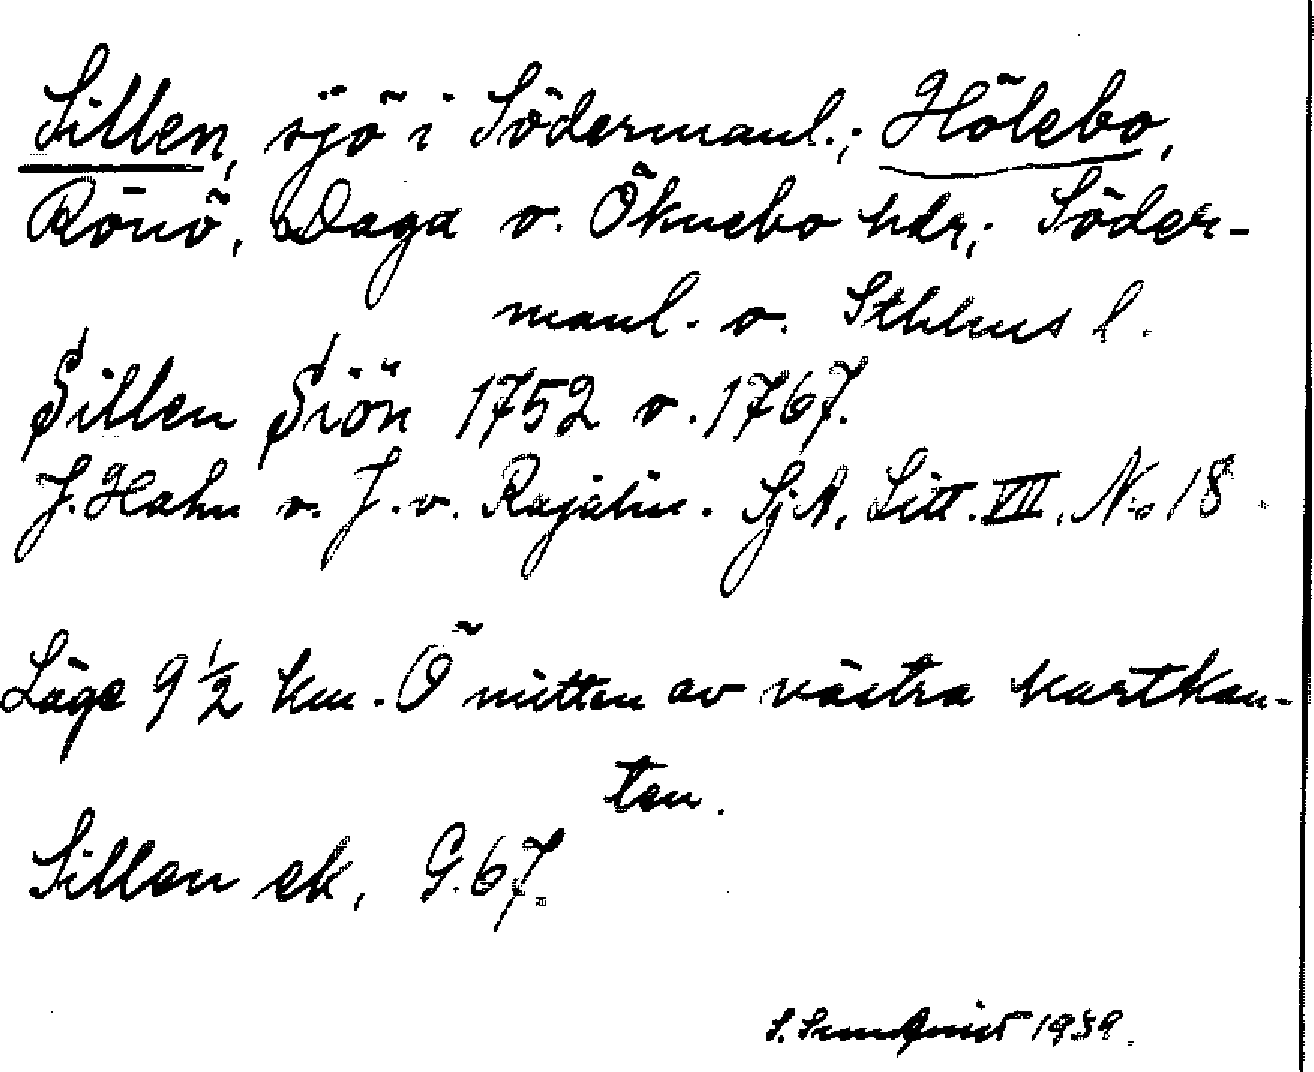 Sillen, sjö i Södermanl.; Hölebo,
Rönö, Daga o. Öknebo hdr; Söder-
manl. o. Sthlms l.
Sillen Siön 1752 o. 1767.
J. Hahn o. J. v. Rajalin. Sj A. Litt. VII. No 18
Läge 9 1/2 km. Ö mitten av västra kartkan-
ten.
Sillen ek. G. 67.
1939.